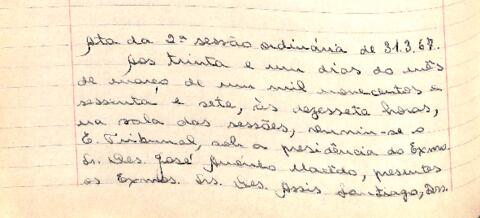 Ata da 2ª sessão ordinária de 31.3.67.
Aos trinta e um dias do mês
de março de um mil novecentos e
sessenta e sete, às dezessete horas,
na sala das sessões, reuniu-se o
E. Tribunal, sob a presidência do Exmo.
Sr. Des. José Américo Macêdo, presentes
os Exmos. Srs. Des. Assis Santiago, Drs.